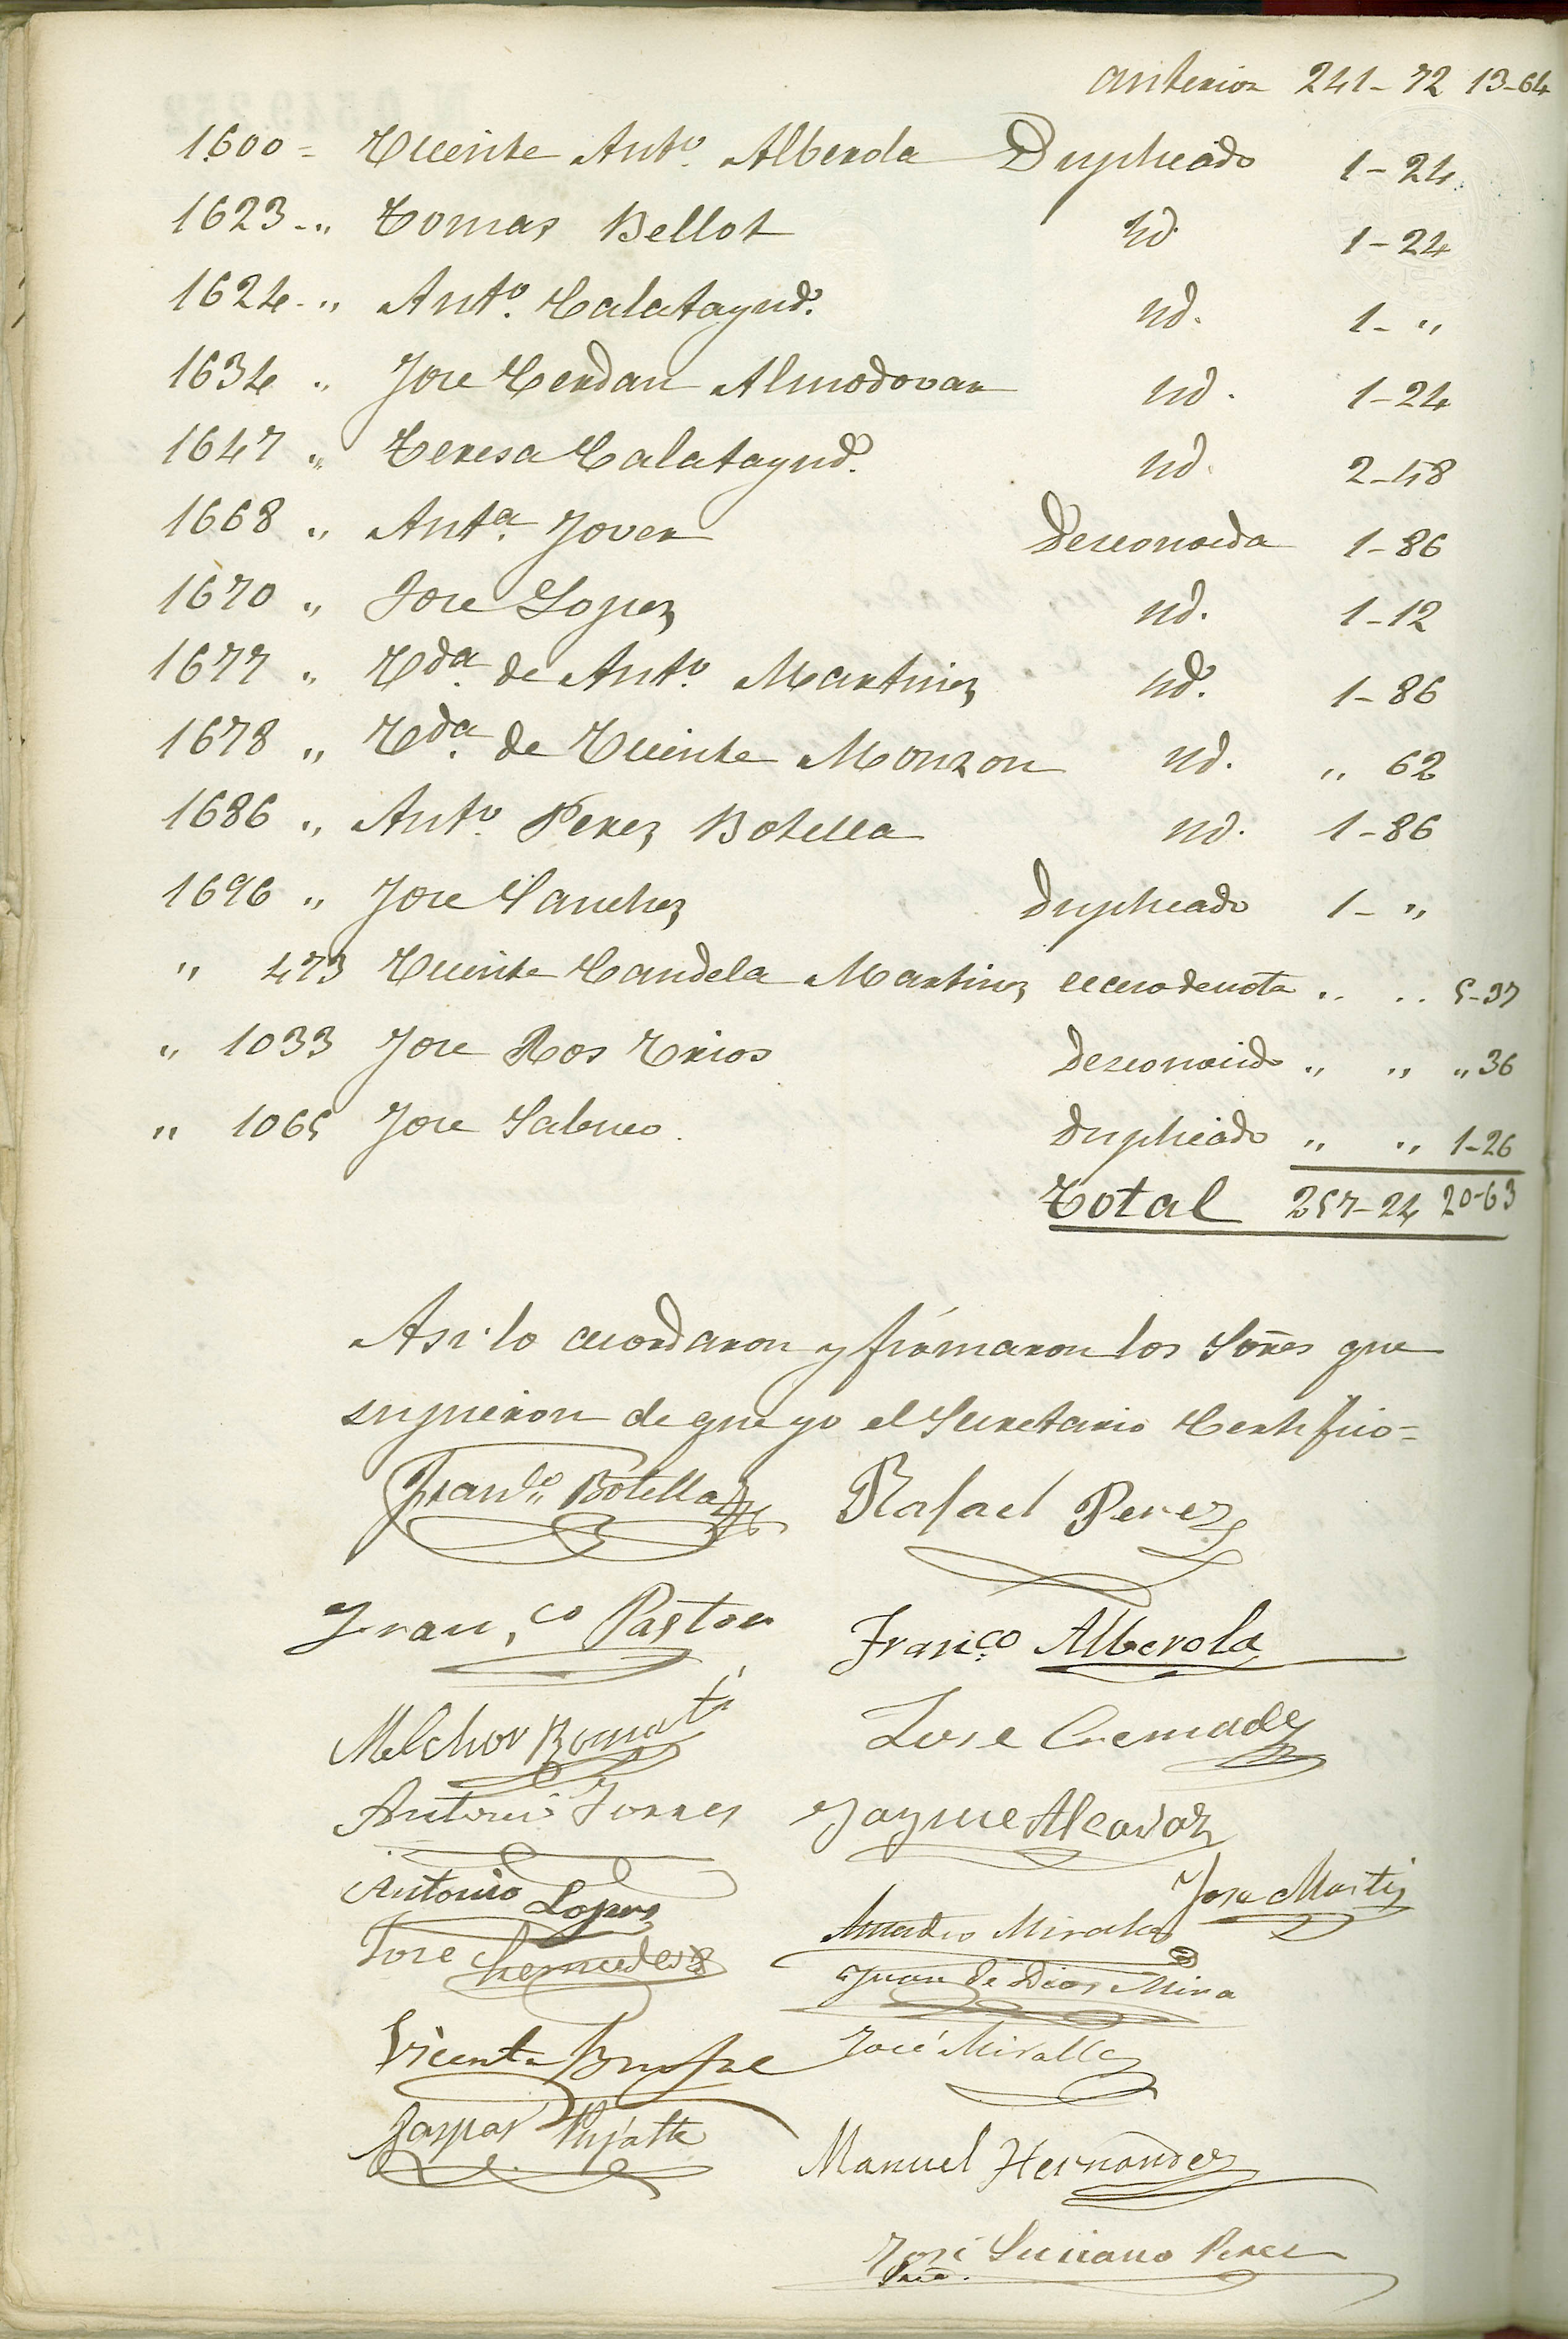 anterior 241-72 13-64
1600 = Vicente Antº. Alberola Duplicado 1-24
1623 -" Tomas Bellot id. 1-24
1624 -" Antº. Calatayud. id. 1- "
1634 " Jose Cerdan Almodovar id. 1-24
1647 " Teresa Calatayud. id. 2-48
1668 " Antª. Jover Desconocida 1-86
1670 " Jose Lopez id. 1-12
1677 " Vdª. de Antº. Martinez id. 1-86
1678 " Vdª. de Vicente Monzon id. " 62
1686 " Antº. Perez Botella id. 1-86
1696 " Jose Sanchez Duplicado 1- "
" 473 Vicente Candela Martinez " " 5-37
" 1033 Jose Ros Trios Desconocido " " " 36
" 1065 Jose Duplicado " " 1-26
Total 257-24 20-63
Asi lo acordaron y firmaron los Sores que
supieron de que yo el Secretario Certifico =
Franco. Botella Rafael Perez
Franco. Pastor Franco. Alberola
Melchor Jose Cremades
Antonio Torres Jayme Alcaraz
Antonio Lopez Jose Martiz
Jose Cremades Amadeo Miralles
Juan de Dios Mira
Vicente José Miralles
Gaspar Manuel Hernandez
José Luciano Perez
Srio.